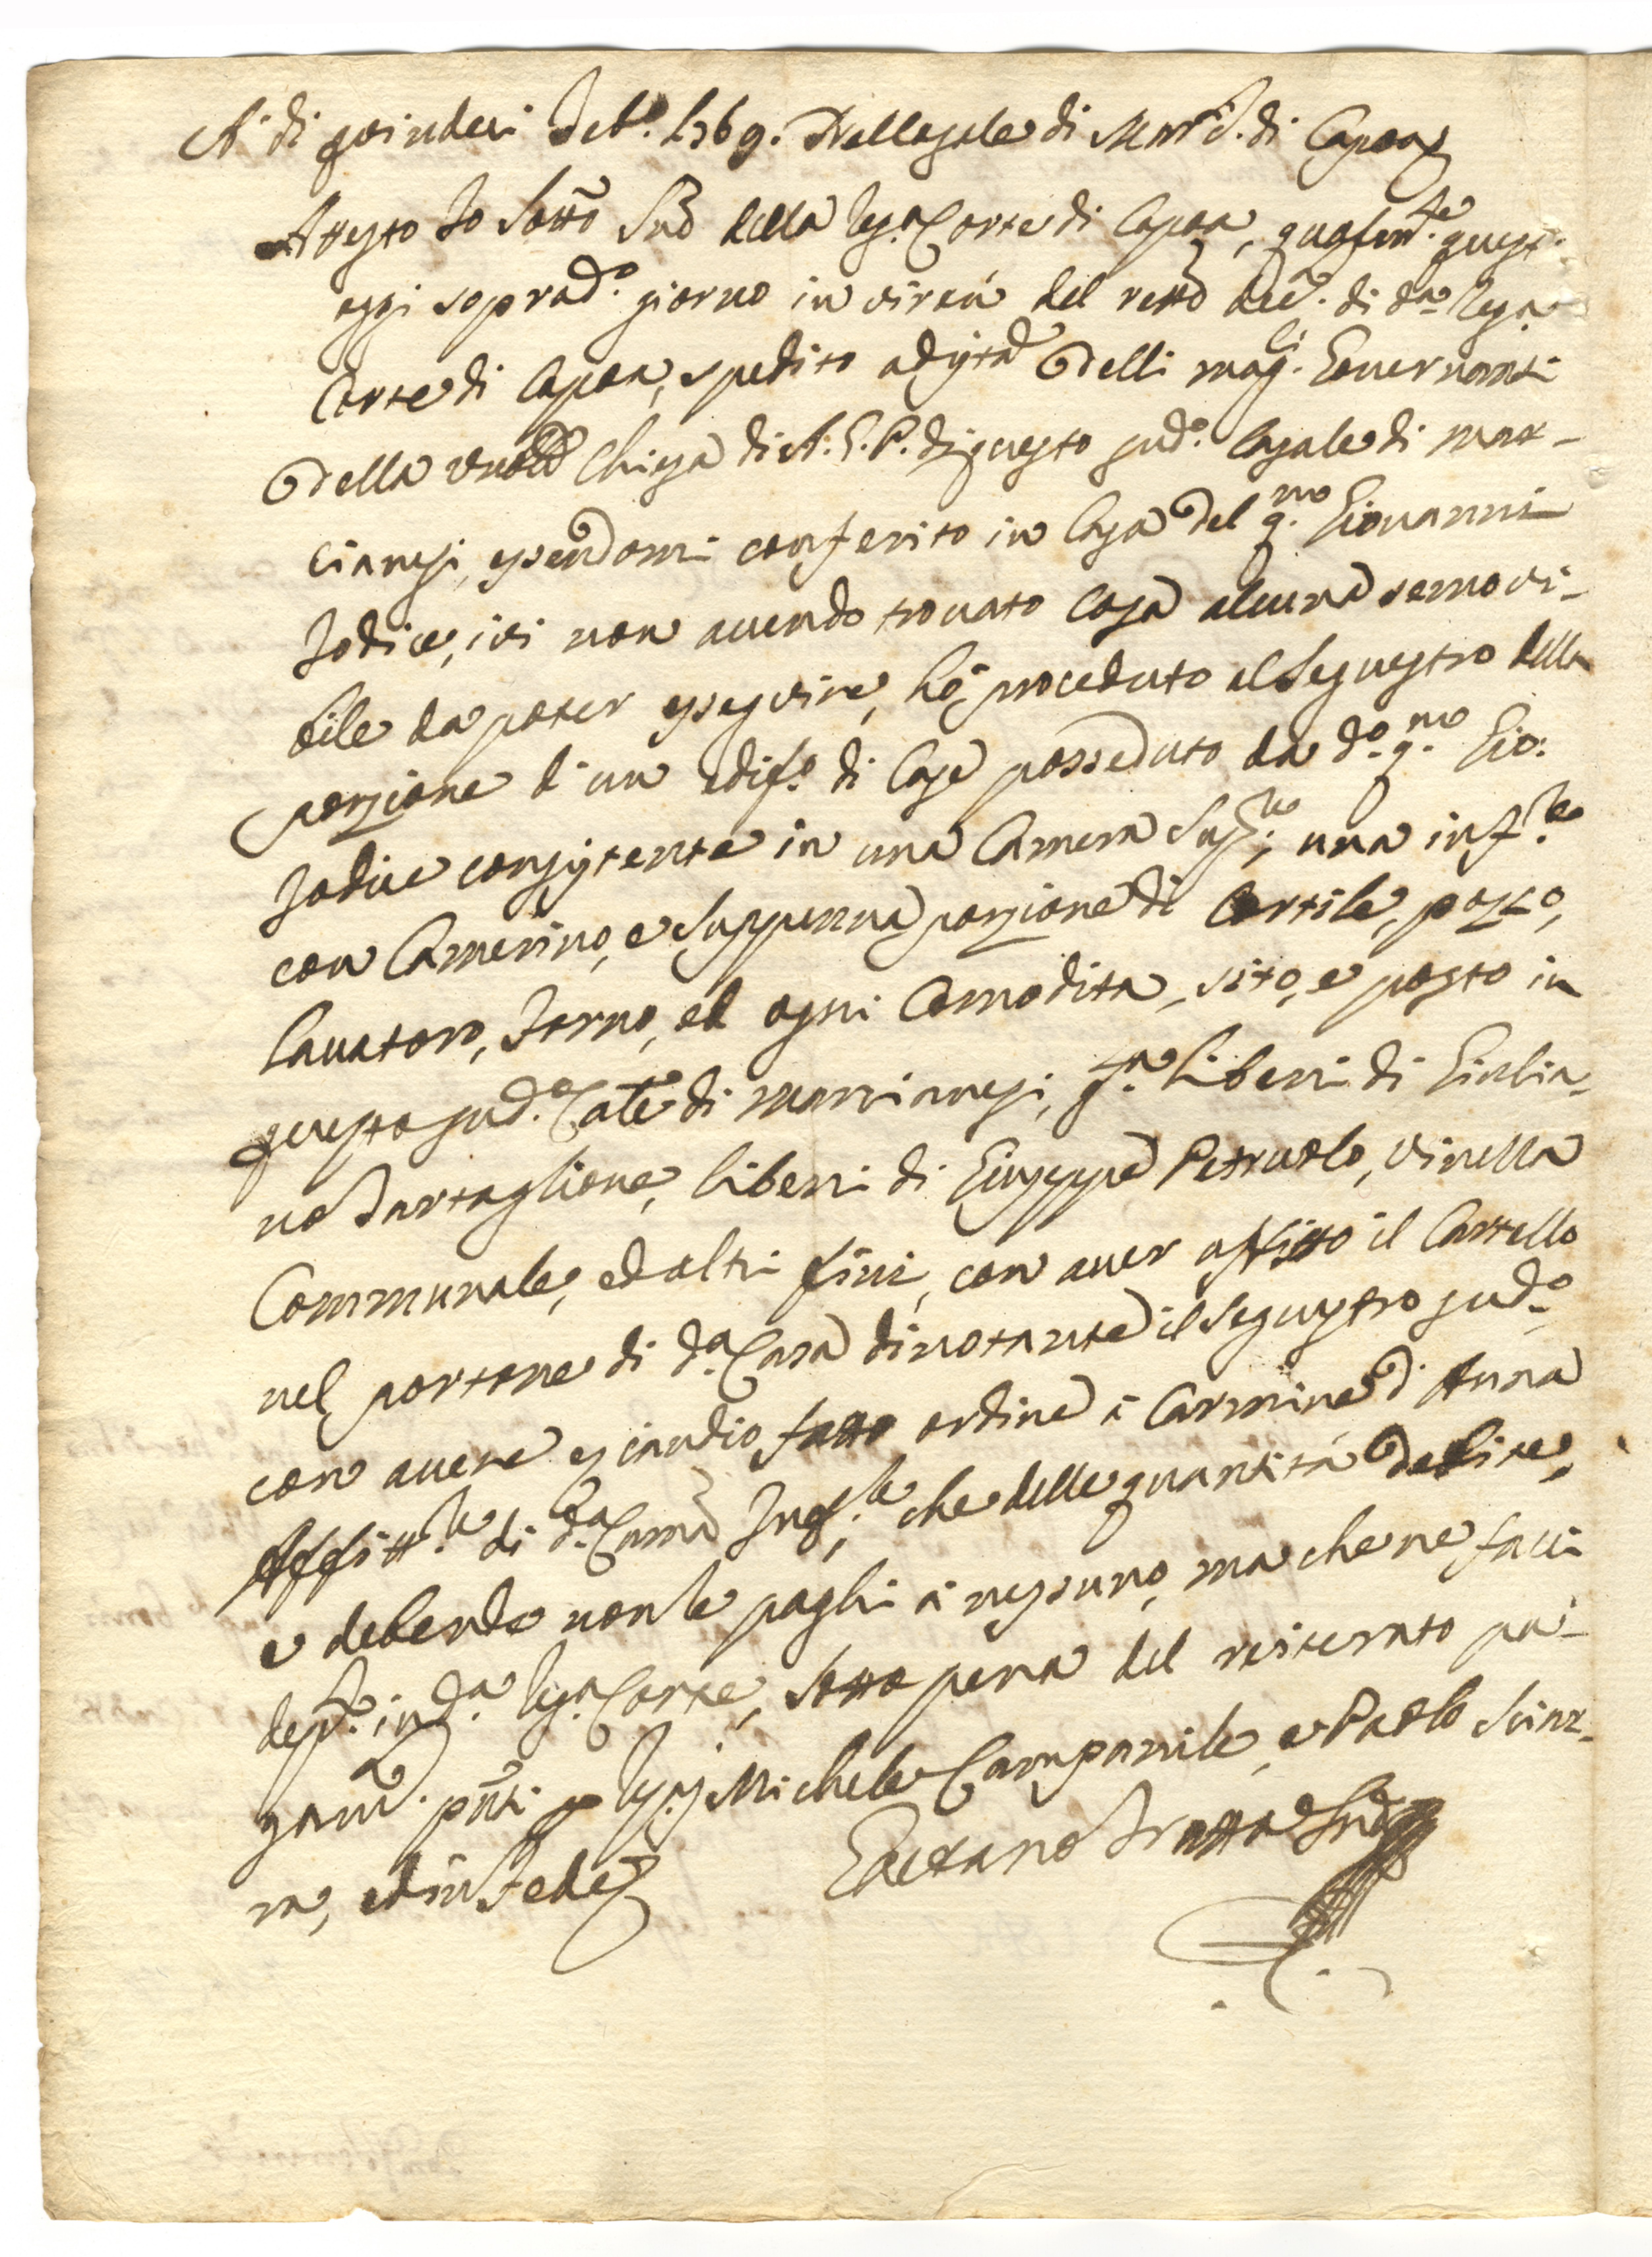 A' di quindeci Feb.o 1769. Nel Casale di Marc.i di Capoa
Attesto Io Sotto Srio della Reg.a Corte di Capoa, qualm.te quest'
oggi soprad.o giorno in virtù del retto dec.o di d.a Reg.a
Corte di Capoa, spedito ad ist.a delli mag.ci Governanti
della Chiesa di A. G. P. di questo sud.o Casale di mar-
cianisi, essendomi conferito in Casa del q.mo Giovanni
Iodice, ivi non avendo trovato cosa alcuna semovi-
bile da poter esseguire, hò proceduto al Sequestro della
porzione d'un edif.o di Case posseduto da d.o q.mo Gio:
Iodice consistente in una Camera Sup.re, una inf.re
con Camerino, e Suppenna porzione di Cortile, pozzo,
lavatoro, forno, ed ogni Comodità, sito, e posto in
questo sud.o Cale di marcianesi, g.ta li beni di Giulia-
no Tartaglione, li beni di Giuseppe Petruolo, vinella
Communale, ed altri fini, con aver affisso il Cartello
nel portone di d.a Casa dinotante il sequestro sud.o
con avere eziandio fatto ordine à Carmine d'Anna
Affitt.re di d.a Cam.a Inf.re, che delle quantità debite,
e debende non le paghi à nessuno, ma che ne facci
dep.to in d.a Reg.a Corte, sotto pena del reiterato pa-
gam.to pnti p tesj Michele Campanile, e Paolo Scior-
ra, ed in fede
Gaetano Tratta Srio